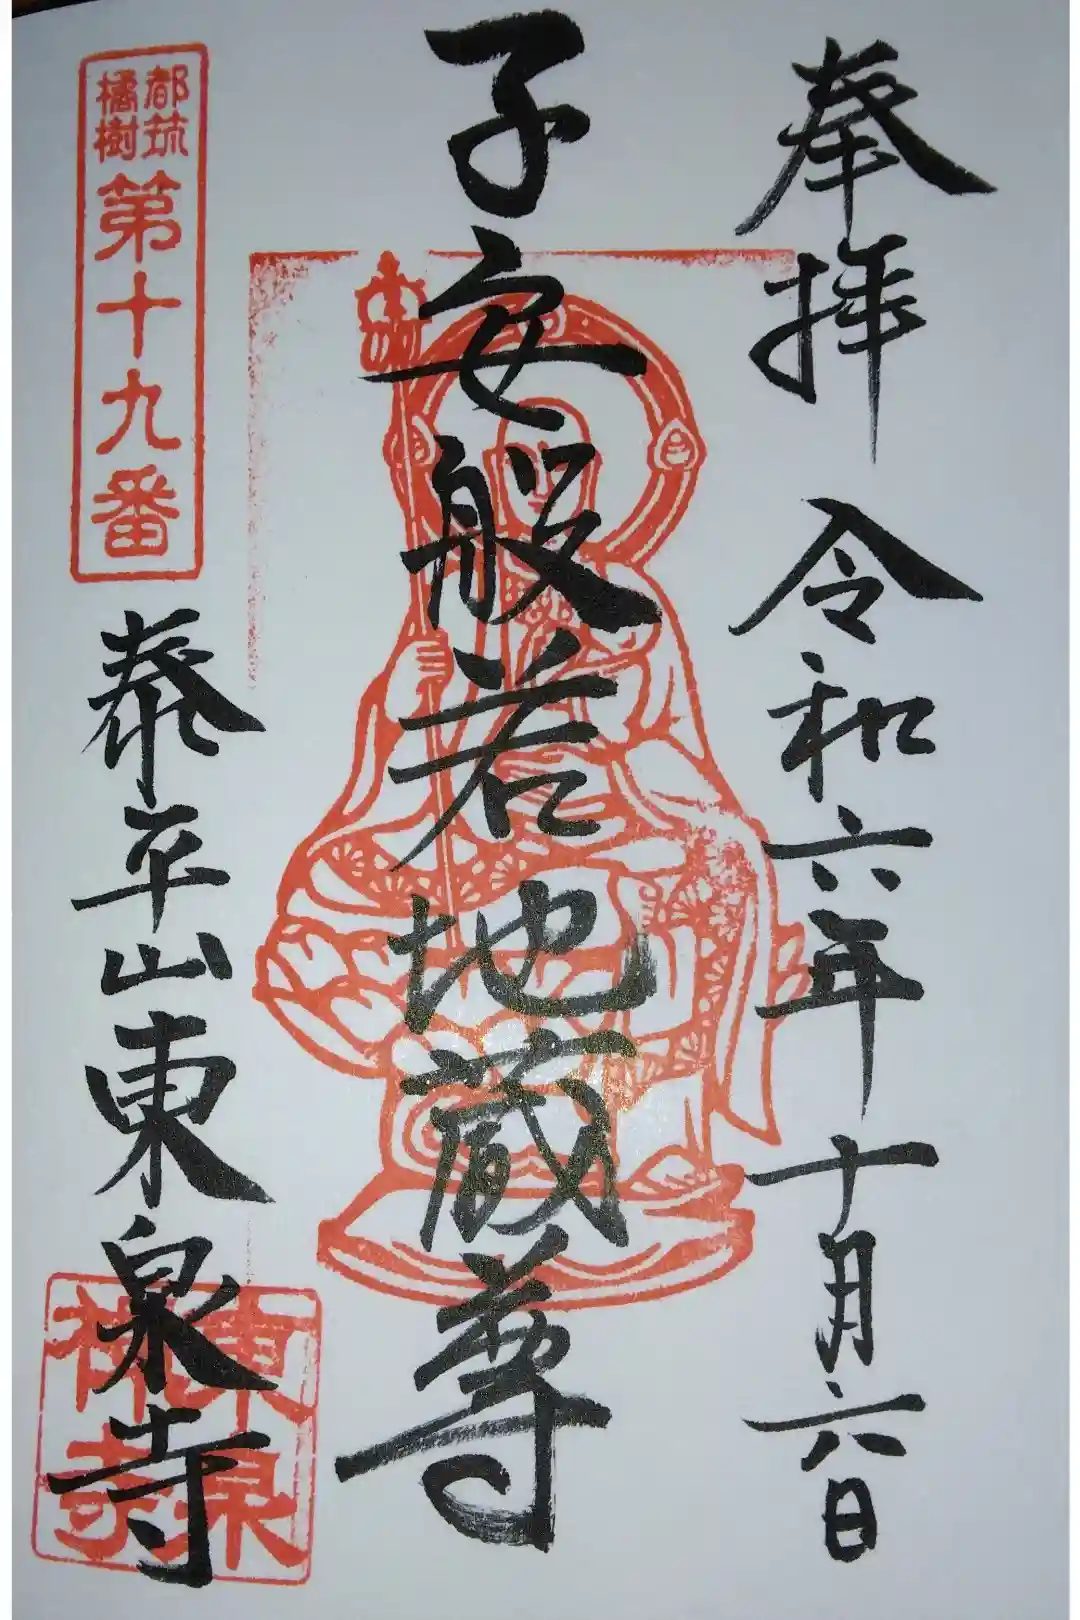 奉拝 令和六年十月六日
子安般若地蔵尊
都筑
橘樹
第十九番
泰平山東泉寺
東泉
禅寺